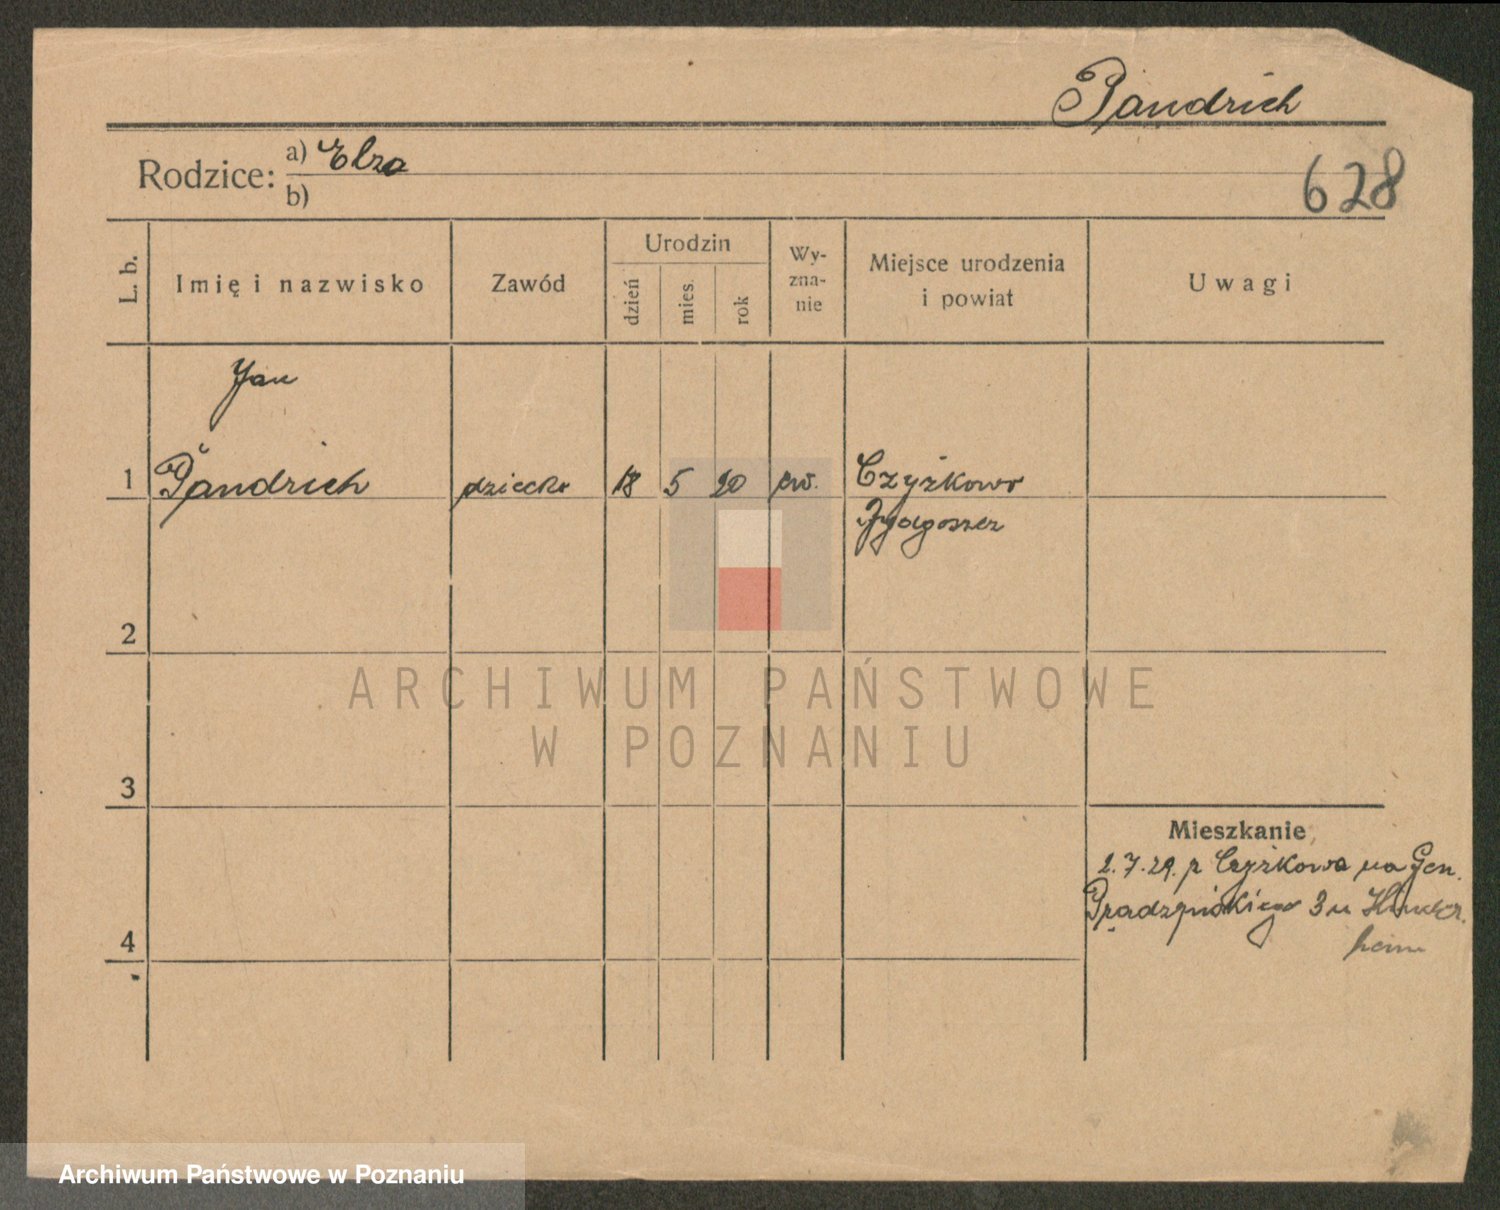 Pandrich
Rodzice: a) Elza
b)
628
L. b.
Imię i nazwisko
Zawód
Urodzin
dzień
mies.
rok
Wy-
zna-
nie
Miejsce urodzenia
i powiat
Uwagi
Jan
1 Pandrich dziecko 18 5 20 ew. Czyżkowo
Bydgoszcz
2
3
4
ARCHIWUM PAŃSTWOWE
W POZNANIU
Mieszkanie
2.7.29. z Czyżkowa na Gen.
Prądzyńskiego 3 u
heim
Archiwum Państwowe w Poznaniu